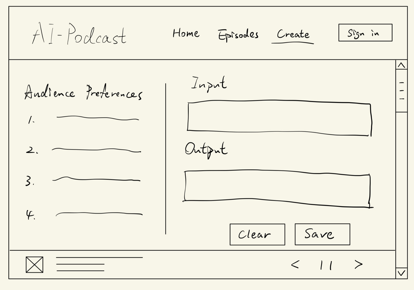 AI-Podcast
Home Episodes Create Sign in
Audience Preferences
1.
2.
3.
4.
Input
Output
Clear Save
< || >